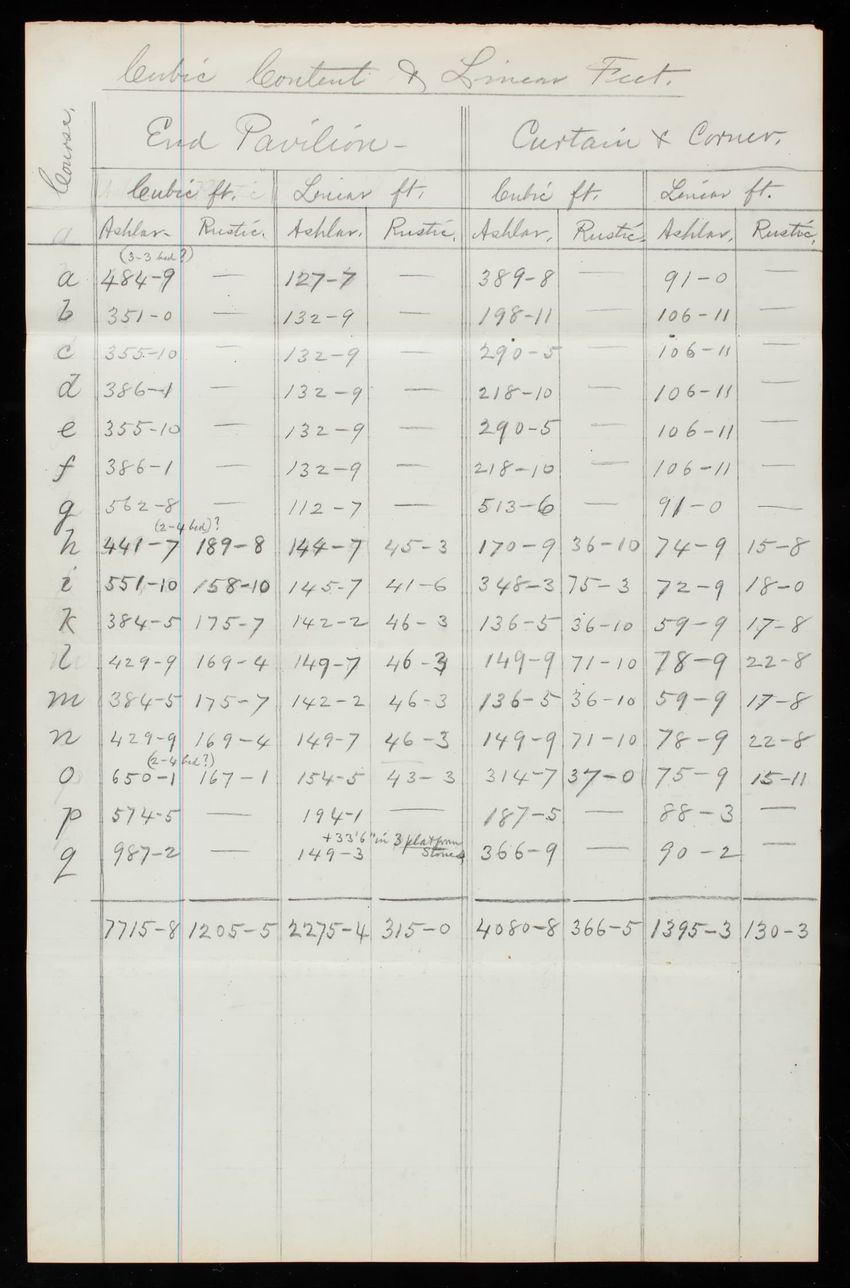 Cubic Content & Linear Feet.
Course. End Pavilion - Curtain & Corner.
Cubic ft. Linear ft. Cubic ft. Linear ft.
Ashlar. Rustic. Ashlar. Rustic. Ashlar. Rustic. Ashlar. Rustic.
(3-3 bed?)
a 484-9 — 127-7 — 389-8 — 91-0 —
b 351-0 — 132-9 — 198-11 — 106-11 —
c 355-10 — 132-9 — 290-5 — 106-11 —
d 386-1 — 132-9 — 218-10 — 106-11 —
e 355-10 — 132-9 — 290-5 — 106-11 —
f 386-1 — 132-9 — 218-10 — 106-11 —
g 562-8 — 112-7 — 513-6 — 91-0 —
(2-4 bed)?
h 441-7 189-8 144-7 45-3 170-9 36-10 74-9 15-8
i 551-10 158-10 145-7 41-6 348-3 75-3 72-9 18-0
k 384-5 175-7 142-2 46-3 136-5 36-10 59-9 17-8
l 429-9 169-4 149-7 46-3 149-9 71-10 78-9 22-8
m 384-5 175-7 142-2 46-3 136-5 36-10 59-9 17-8
n 429-9 169-4 149-7 46-3 149-9 71-10 78-9 22-8
(2-4 bed?)
o 650-1 167-1 154-5 43-3 314-7 37-0 75-9 15-11
p 574-5 — 194-1 — 187-5 — 88-3 —
+33'6" in 3 platform
Stones
q 987-2 — 149-3 366-9 — 90-2 —
7715-8 1205-5 2275-4 315-0 4080-8 366-5 1395-3 130-3